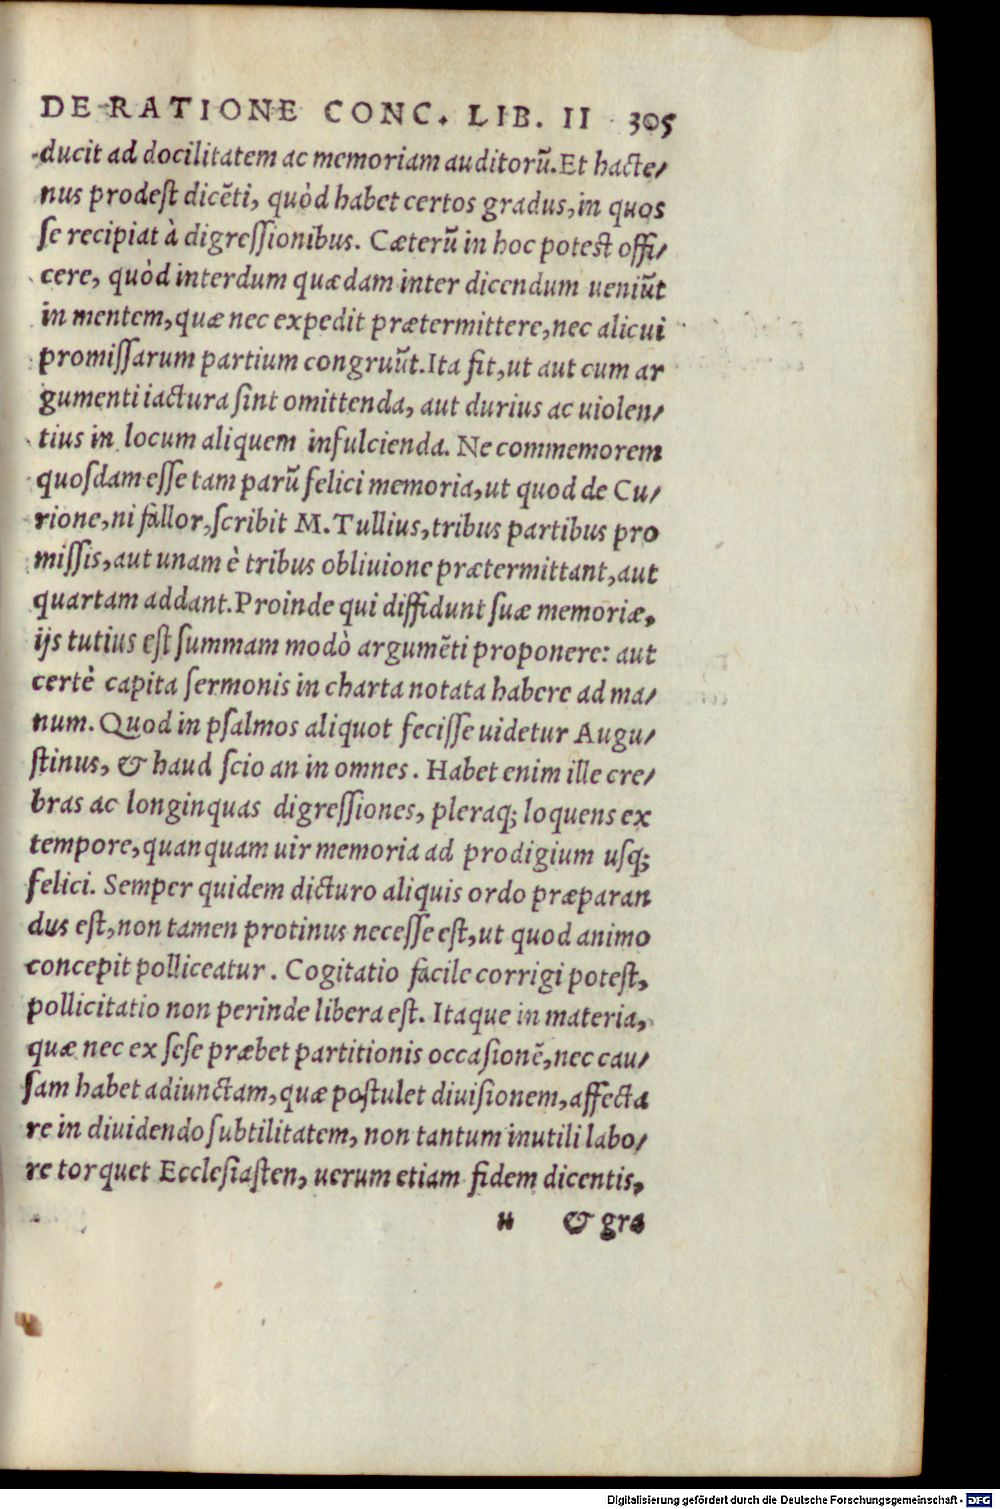 DE RATIONE CONC. LIB. II 305
ducit ad docilitatem ac memoriam auditorũ. Et hacte/
nus prodest dicẽti, quòd habet certos gradus, in quos
se recipiat à digressionibus. Cæterũ in hoc potest offi/
cere, quòd interdum quædam inter dicendum ueniũt
in mentem, quæ nec expedit prætermittere, nec alicui
promissarum partium congruũt. Ita fit, ut aut cum ar
gumenti iactura sint omittenda, aut durius ac uiolen/
tius in locum aliquem infulcienda. Ne commemorem
quosdam esse tam parũ felici memoria, ut quod de Cu/
rione, ni fallor, scribit M. Tullius, tribus partibus pro
missis, aut unam è tribus obliuione prætermittant, aut
quartam addant. Proinde qui diffidunt suæ memoriæ,
ijs tutius est summam modò argumẽti proponere: aut
certè capita sermonis in charta notata habere ad ma/
num. Quod in psalmos aliquot fecisse uidetur Augu/
stinus, & haud scio an in omnes. Habet enim ille cre/
bras ac longinquas digressiones, pleraq; loquens ex
tempore, quanquam uir memoria ad prodigium usq;
felici. Semper quidem dicturo aliquis ordo præparan
dus est, non tamen protinus necesse est, ut quod animo
concepit polliceatur. Cogitatio facile corrigi potest,
pollicitatio non perinde libera est. Itaque in materia,
quæ nec ex sese præbet partitionis occasionẽ, nec cau/
sam habet adiunctam, quæ postulet diuisionem, affecta
re in diuidendo subtilitatem, non tantum inutili labo/
re torquet Ecclesiasten, uerum etiam fidem dicentis,
u & gra
Digitalisierung gefördert durch die Deutsche Forschungsgemeinschaft - DFG